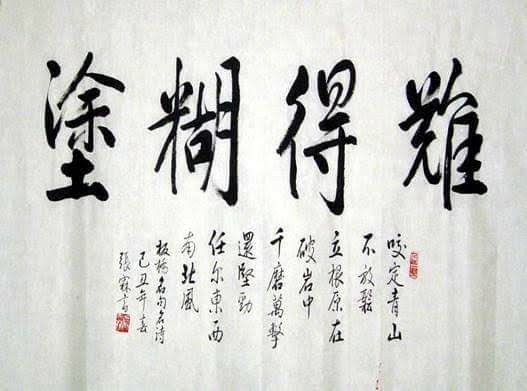 難得糊塗
咬定青山
不放鬆
立根原在
破岩中
千磨萬擊
還堅勁
任尔東西
南北風
板橋名句名诗
己丑年春
張霖書